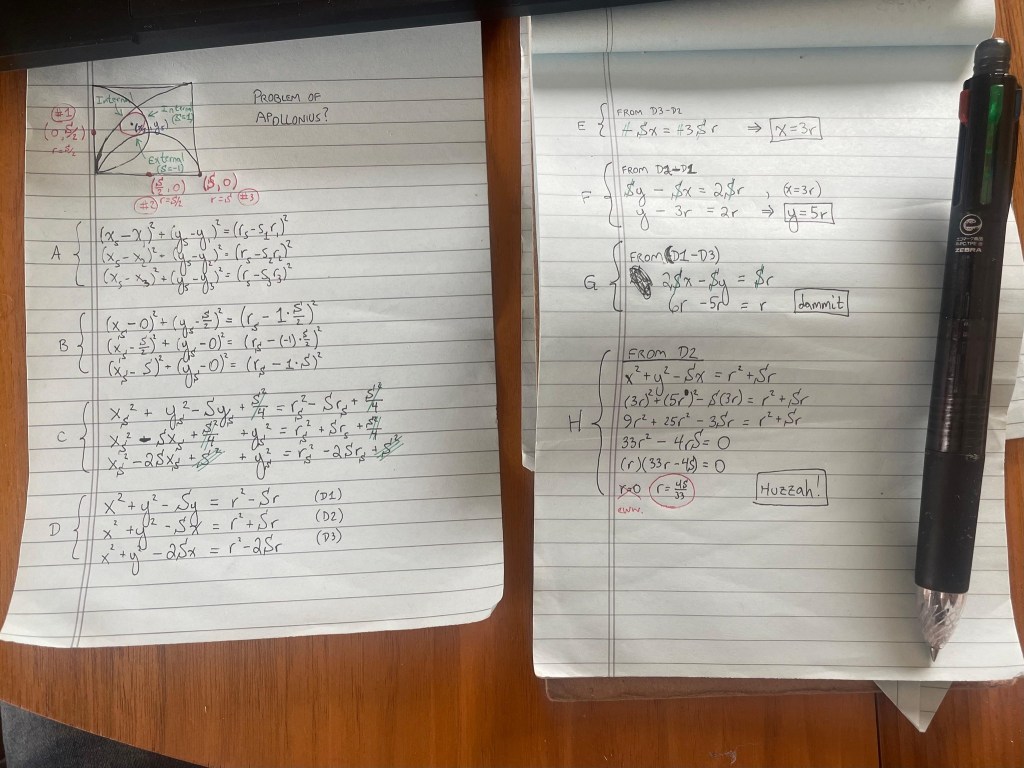 PROBLEM OF
APOLLONIUS?
Internal
Internal
(S=1)
#1
(0, S/2)
r=S/2
(xₛ, yₛ)
External
(S=-1)
(S/2, 0)
#2 r=S/2
(S, 0)
r=S #3
A
(xₛ-x₁)²+(yₛ-y₁)²=(rₛ-s₁r₁)²
(xₛ-x₂)²+(yₛ-y₂)²=(rₛ-s₂r₂)²
(xₛ-x₃)²+(yₛ-y₃)²=(rₛ-s₃r₃)²
B
(xₛ-0)²+(yₛ-S/2)²=(rₛ-1·S/2)²
(xₛ-S/2)²+(yₛ-0)²=(rₛ-(-1)·S/2)²
(xₛ-S)²+(yₛ-0)²=(rₛ-1·S)²
C
xₛ²+yₛ²-Syₛ+S²/4=rₛ²-Srₛ+S²/4
xₛ²-Sxₛ+S²/4+yₛ²=rₛ²+Srₛ+S²/4
xₛ²-2Sxₛ+S²+yₛ²=rₛ²-2Srₛ+S²
D
x²+y²-Sy=r²-Sr (D1)
x²+y²-Sx=r²+Sr (D2)
x²+y²-2Sx=r²-2Sr (D3)
E
FROM D3-D2
+Sx=+3Sr ⇒ x=3r
F
FROM D2-D1
Sy-Sx=2Sr, (x=3r)
y-3r=2r ⇒ y=5r
G
FROM (D1-D3)
2Sx-Sy=Sr
6r-5r=r dammit
H
FROM D2
x²+y²-Sx=r²+Sr
(3r)²+(5r)²-S(3r)=r²+Sr
9r²+25r²-3Sr=r²+Sr
33r²-4rS=0
(r)(33r-4S)=0
r=0 r=4S/33 Huzzah!
eww.
ZEBRA